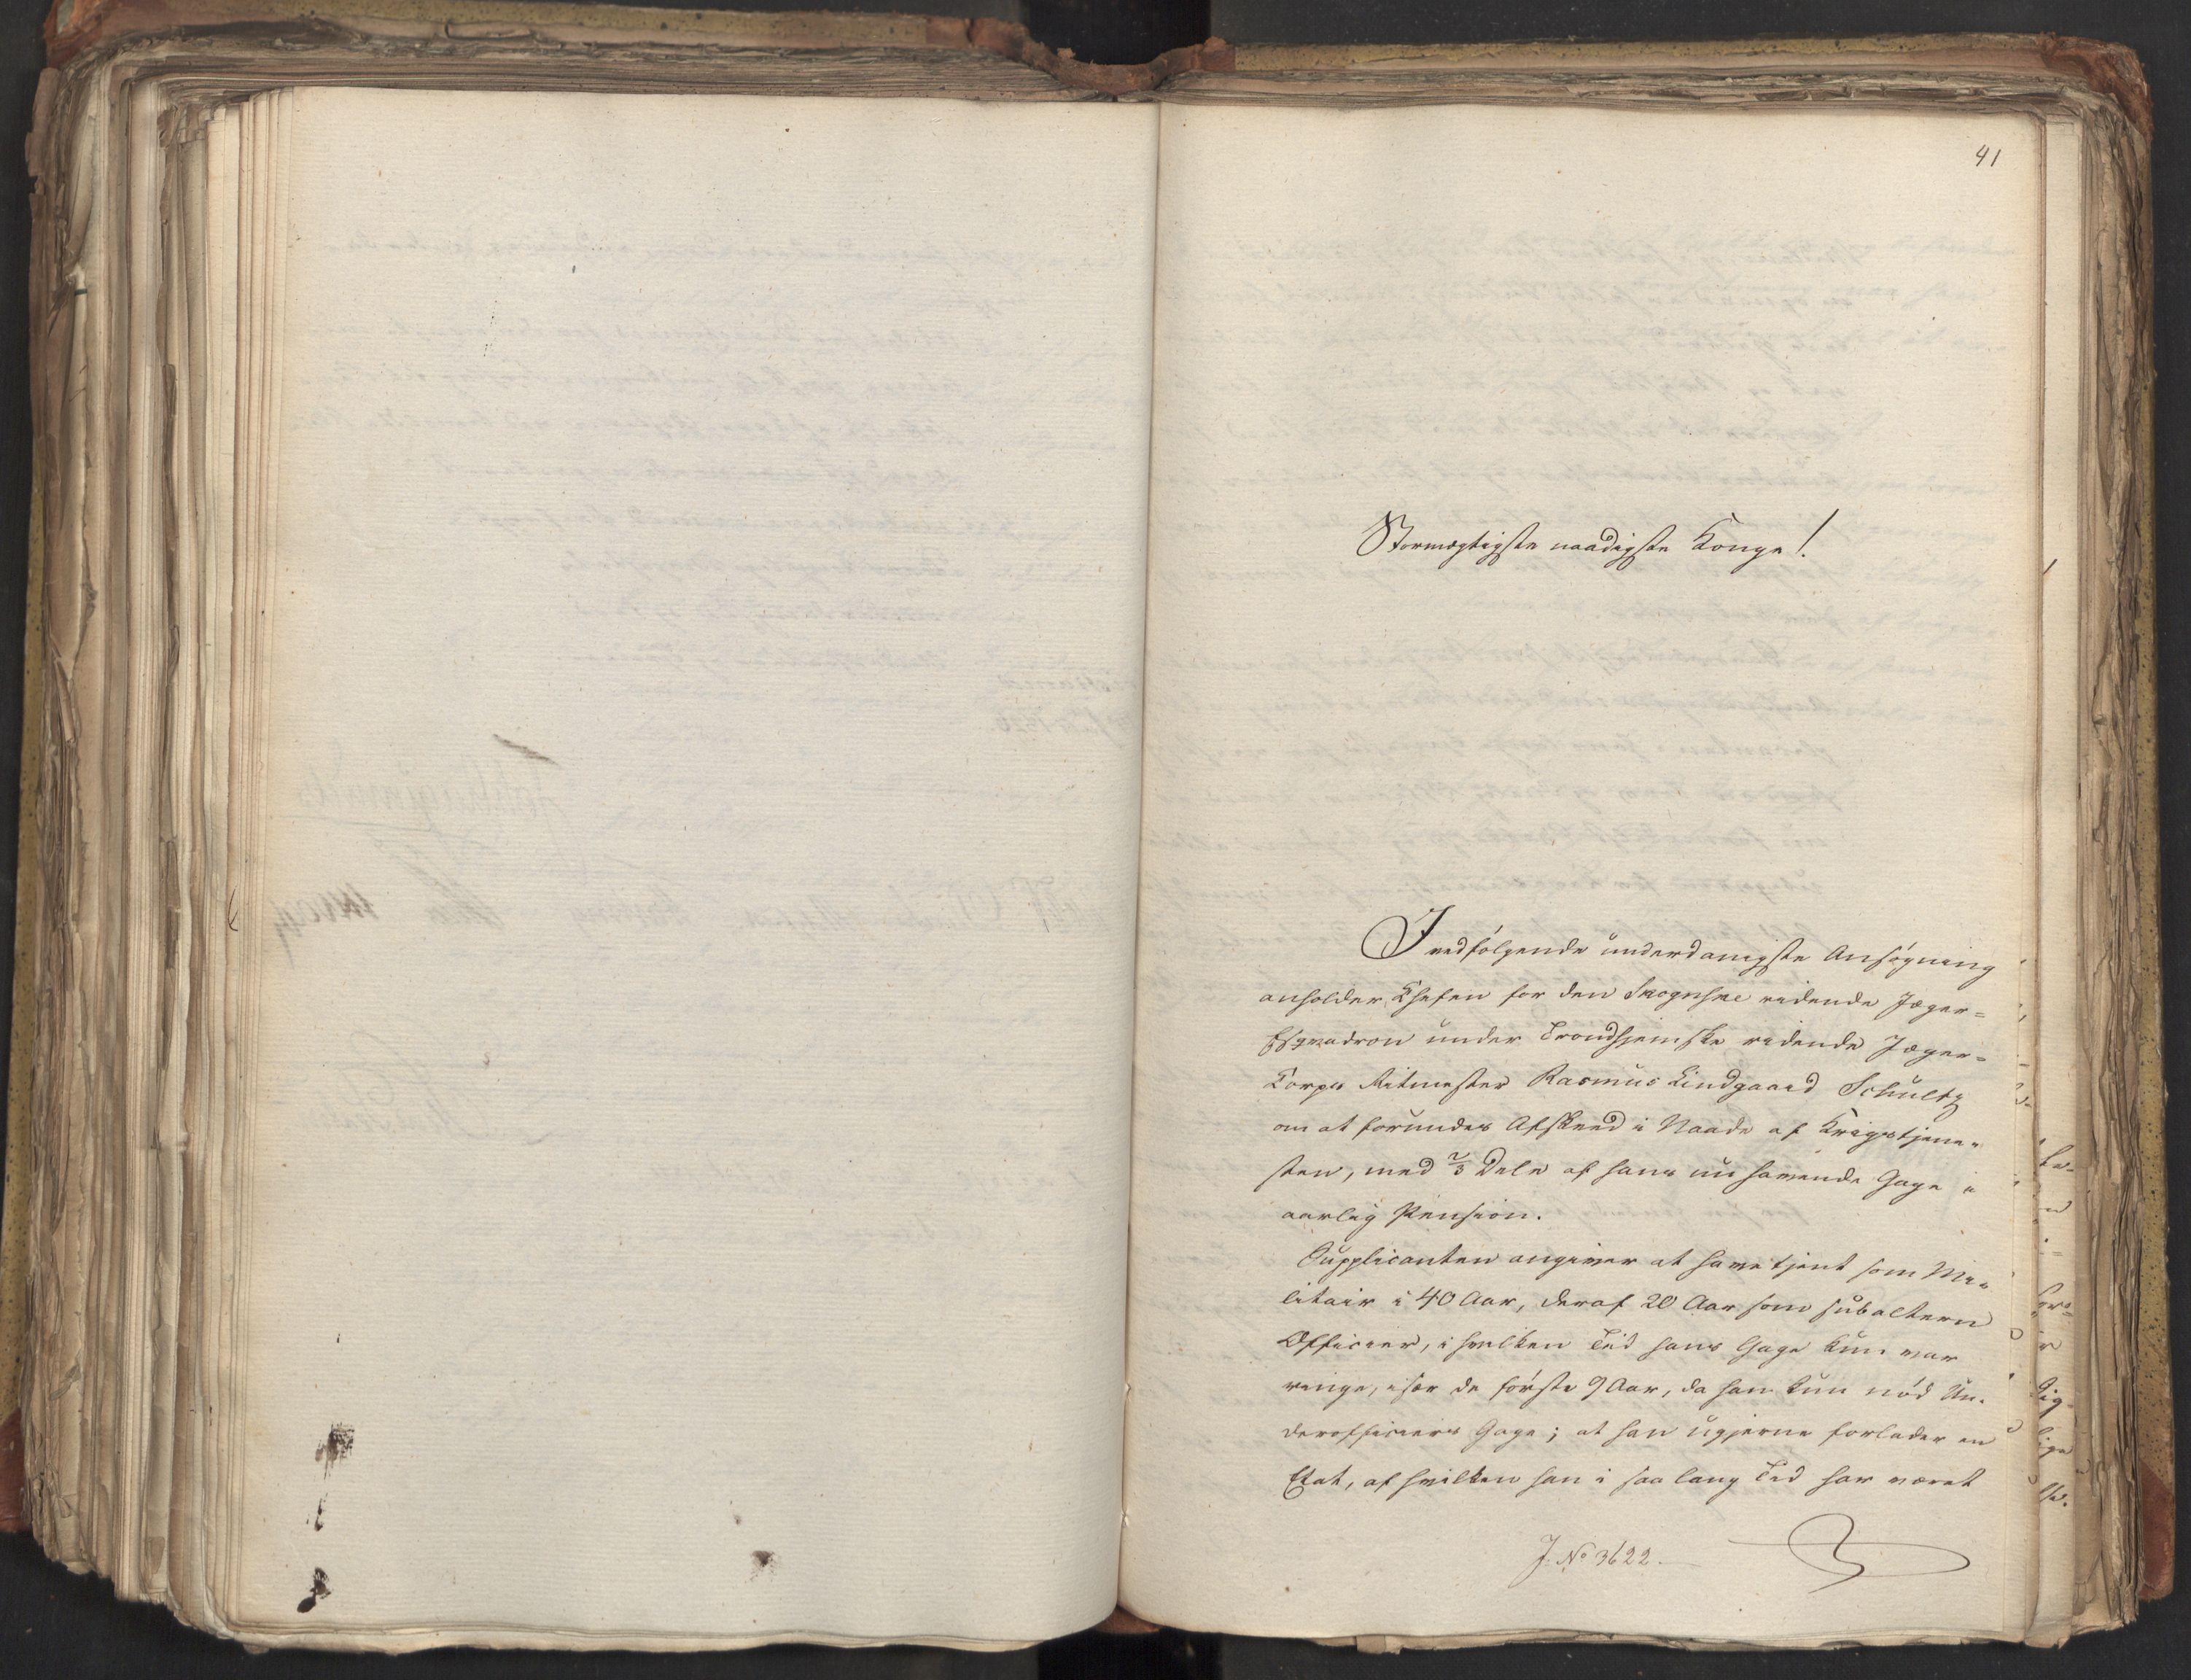 41
Stormægtigste naadigste Konge!
I vedfølgende underdanigste Ansøgning
anholder Chefen for den Skognske ridende Jæger=
Esqvadron under Trondhjemske ridende Jæger=
Corps Ritmester Rasmus Lindgaard Schultz
om at forundes Afskeed i Naade af Krigstjene=
sten, med 2/3 Dele af hans nu havende Gage i
aarlig Pension.
Supplicanten angiver at have tjent som Mi=
litair i 40 Aar, deraf 20 Aar som subaltern
Officier, i hvilken Tid hans Gage kun var
ringe, især de første 9 Aar, da han kun nød Un=
derofficiers Gage; at han ugjerne forlader en
Etat, af hvilken han i saa lang Tid har været
J. No 3622.